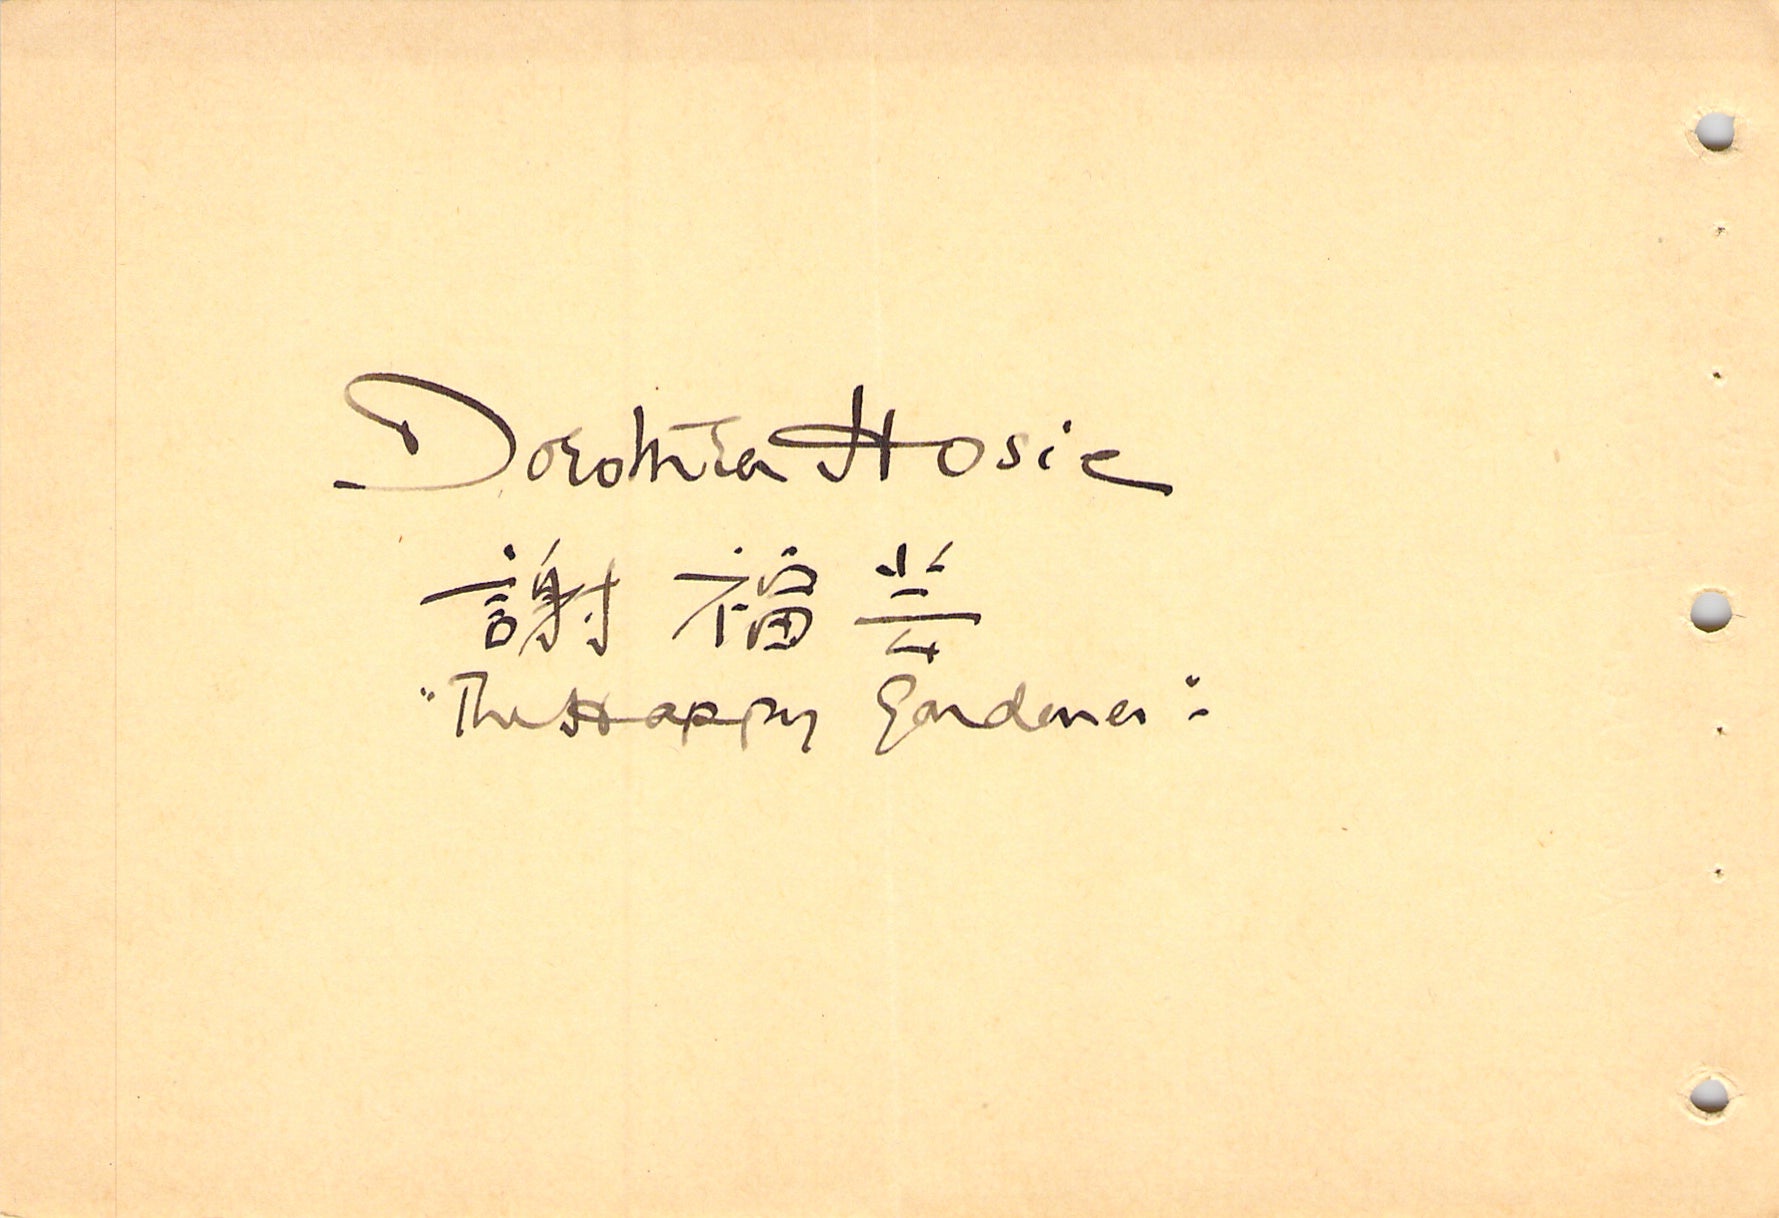 Dorothea Hosie
謝福芸
"The Happy Gardener".